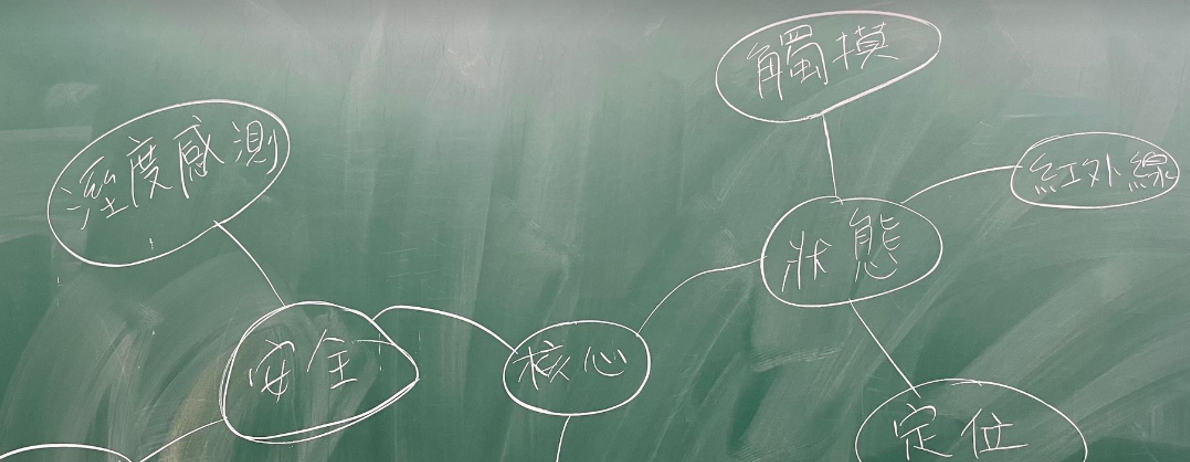 觸摸
溼度感測
紅外線
狀態
安全
核心
定位